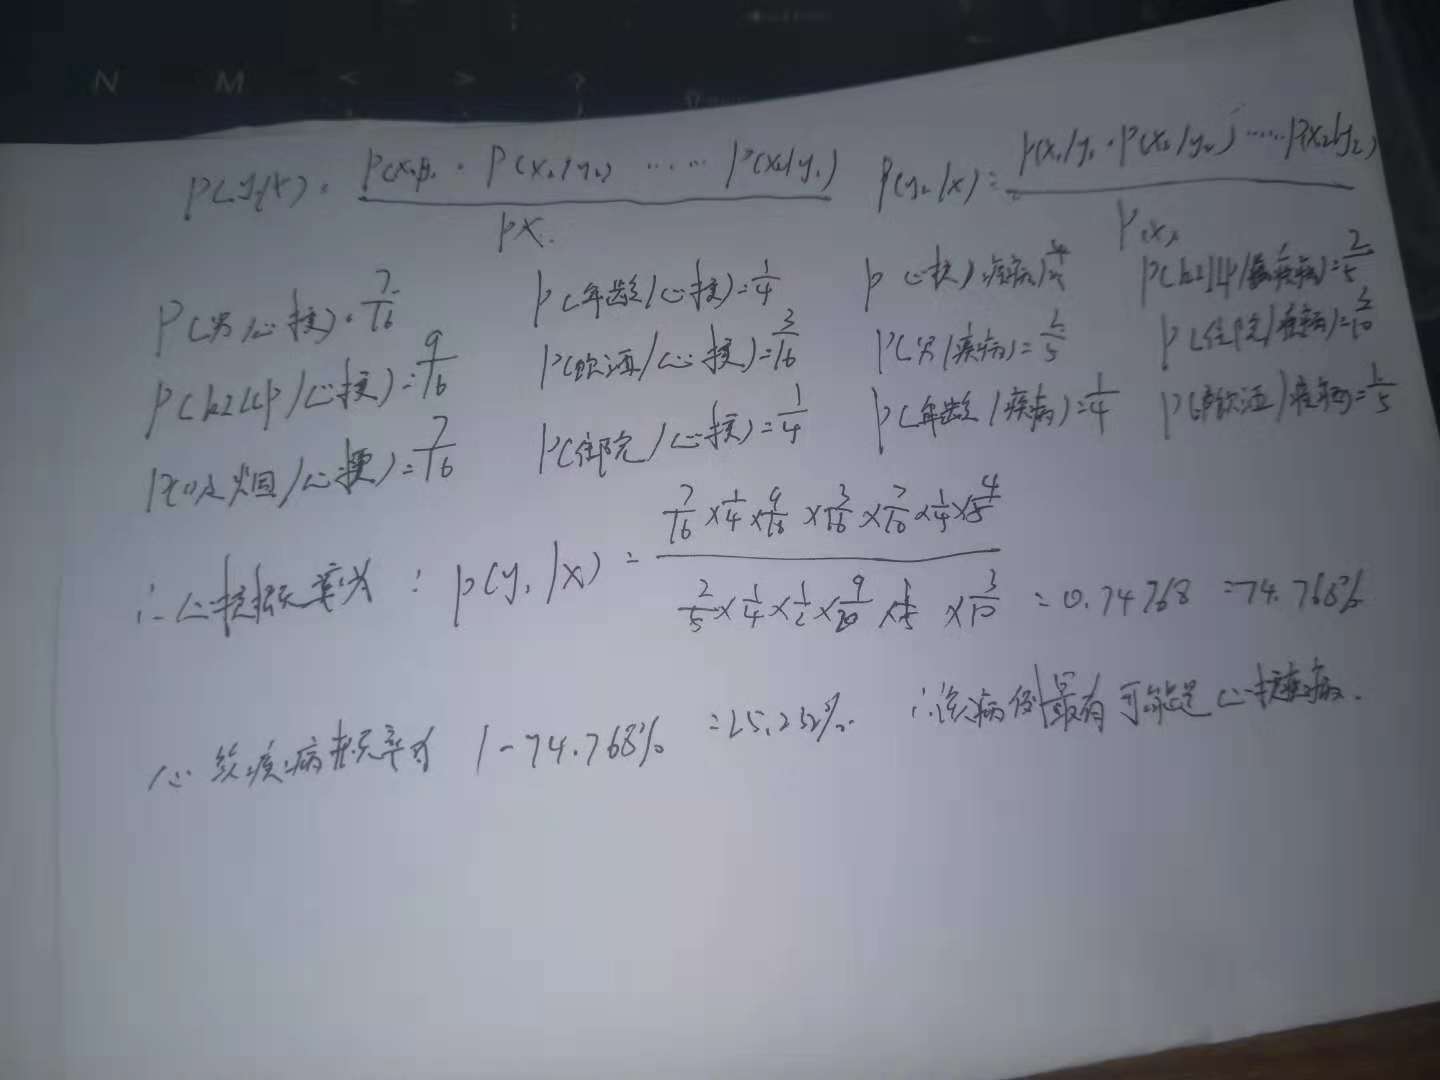 N M < > ?
P(y₁|x) = P(x₁|y₁ · P(x₂/y₂) ······ P(x₂/y₁) / PX. P(y₂/x) = P(x₁/y₁ · P(x₂/y₂) ······ P(x₂|y₂) / P(x)
P(男/心梗) = 7/16 P(年龄/心梗) = 1/4 P(心梗/疾病) = 4/5 P(k214/疾病) = 2/5
P(k214/心梗) = 9/16 P(饮酒/心梗) = 3/16 P(男/疾病) = 2/5 P(住院/疾病) = 3/10
P(吸烟/心梗) = 7/16 P(住院/心梗) = 1/4 P(年龄/疾病) = 1/4 P(饮酒/疾病) = 1/5
∴心梗概率为: P(y₁|x) = 7/16 × 1/4 × 9/16 × 3/16 × 7/10 × 1/4 × 4/5 / 2/5 × 1/4 × 1/2 × 9/20 × 1/5 × 3/10 = 0.74768 = 74.768%
心绞疾病概率为 1-74.768% = 25.232%. ∴该病例最有可能是心梗疾病.